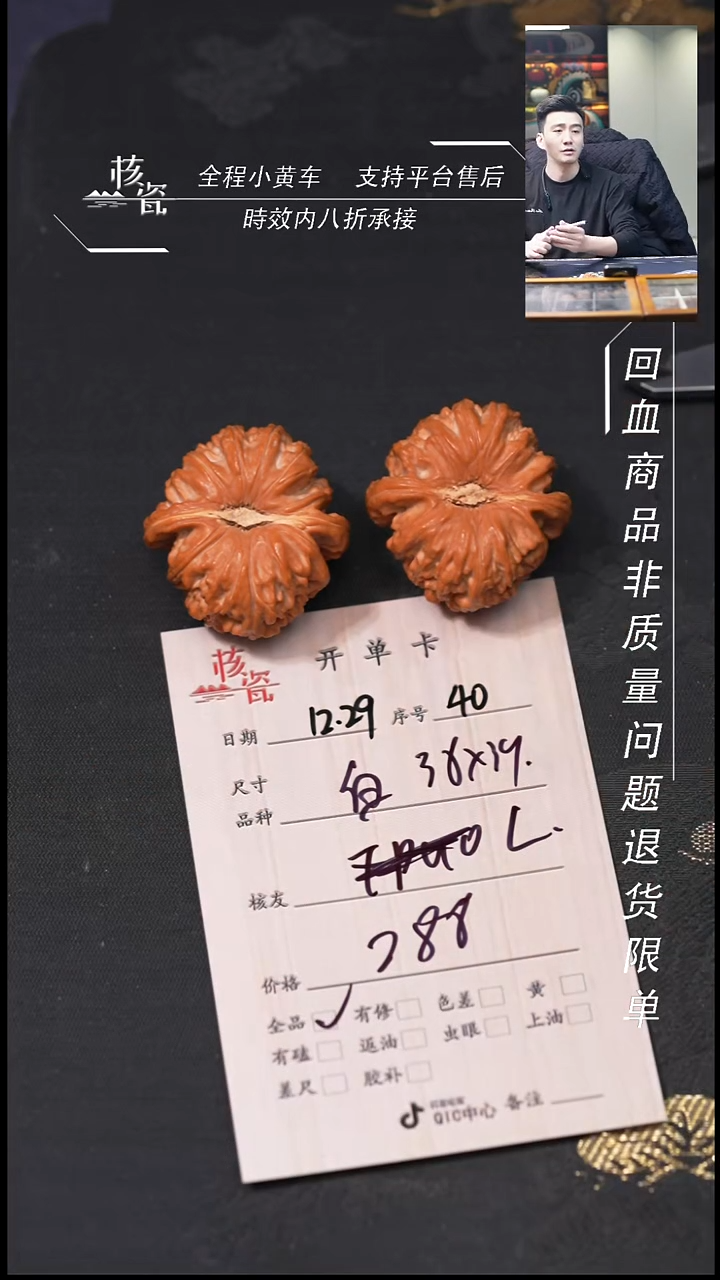 核瓷
全程小黄车 支持平台售后
時效内八折承接
回血商品非质量问题退货限单
核瓷
开单卡
日期 12.29 序号 40
尺寸
品种
核友 L.
价格 288
全品 ✓ 有修 色差 黄
有磕 返油 虫眼 上油
差尺 胶补
QIC中心 备注